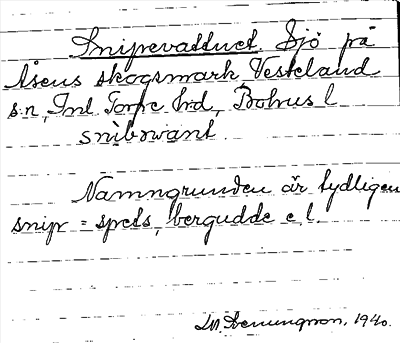 Snipevattnet. Sjö på
Åsens skogsmark Vesteland
s:n, Inl Torpe hrd, Bohus l
snìbəwant.
Namngrunden är tydligen
snip = spets, bergudde e. l.
1940.